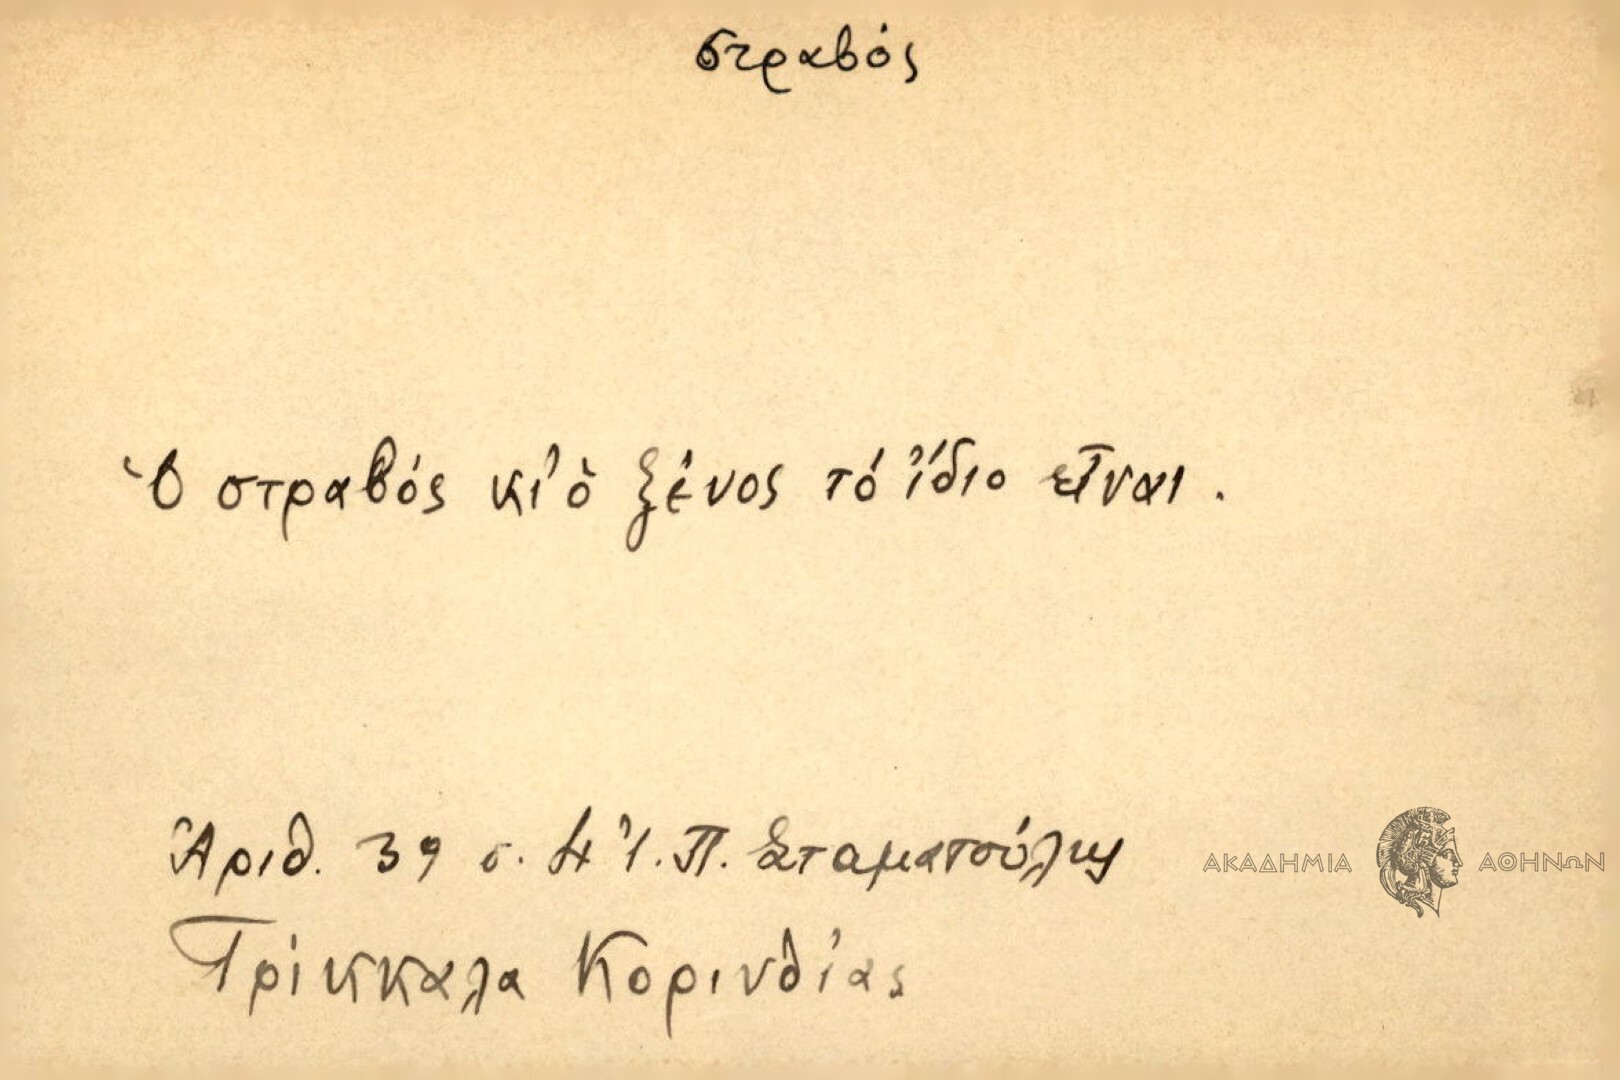 στραβός
Ὁ στραβός κι' ὁ ξένος τό ἴδιο εἶναι.
Ἀριθ. 39 σ. 4 Ἰ. Π. Σταματούλης
ΑΚΑΔΗΜΙΑ ΑΘΗΝΩΝ
Τρίκκαλα Κορινθίας